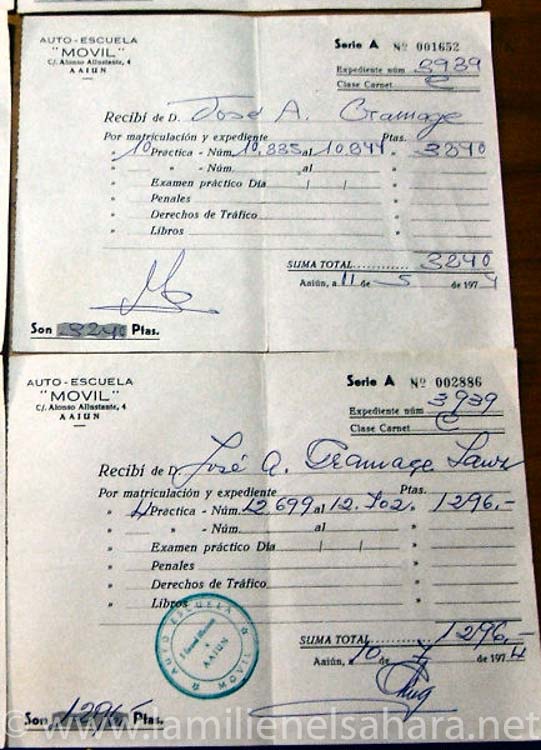 AUTO-ESCUELA
"MOVIL"
C/. Alonso Allustante, 4
AAIUN
Serie A Nº 001652
Expediente núm 3939
Clase Carnet C
Recibí de D. José A. Gramage
Por matriculación y expediente Ptas.
" 10 Práctica - Núm. 10.835 al 10.844 " 3240
" " - Núm. al "
" Examen práctico Día / / "
" Penales "
" Derechos de Tráfico "
" Libros "
SUMA TOTAL............ 3240
Aaiún, a 11 de 5 de 1974
Son 3240 Ptas.
AUTO-ESCUELA
"MOVIL"
C/. Alonso Allustante, 4
AAIUN
Serie A Nº 002886
Expediente núm 3939
Clase Carnet C
Recibí de D. José A. Gramage Sanz
Por matriculación y expediente Ptas.
" 4 Práctica - Núm. 12.699 al 12.702. " 1296,-
" " - Núm. al "
" Examen práctico Día / / "
" Penales "
" Derechos de Tráfico "
" Libros "
AUTO ESCUELA MOVIL
AAIUN
SUMA TOTAL............ 1296,-
Aaiún, a 10 de 7 de 1974
Son 1296 Ptas.
© www.lamilienelsahara.net